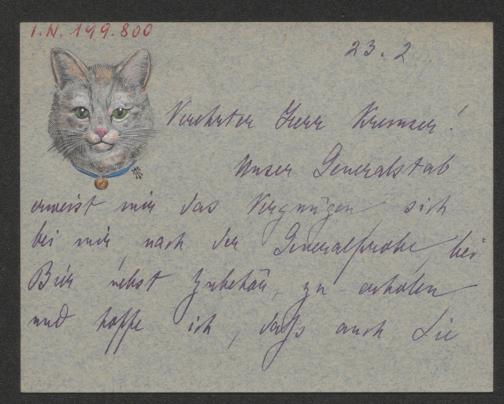 I.N. 199.800
23. 2
Verehrter Herr Kremser!
Unser Generalstab
erweist mir das Vergnügen sich
bei mir, nach der Generalprobe, bei
Bier nebst Zubehör, zu erholen
und hoffe ich, daſs auch Sie